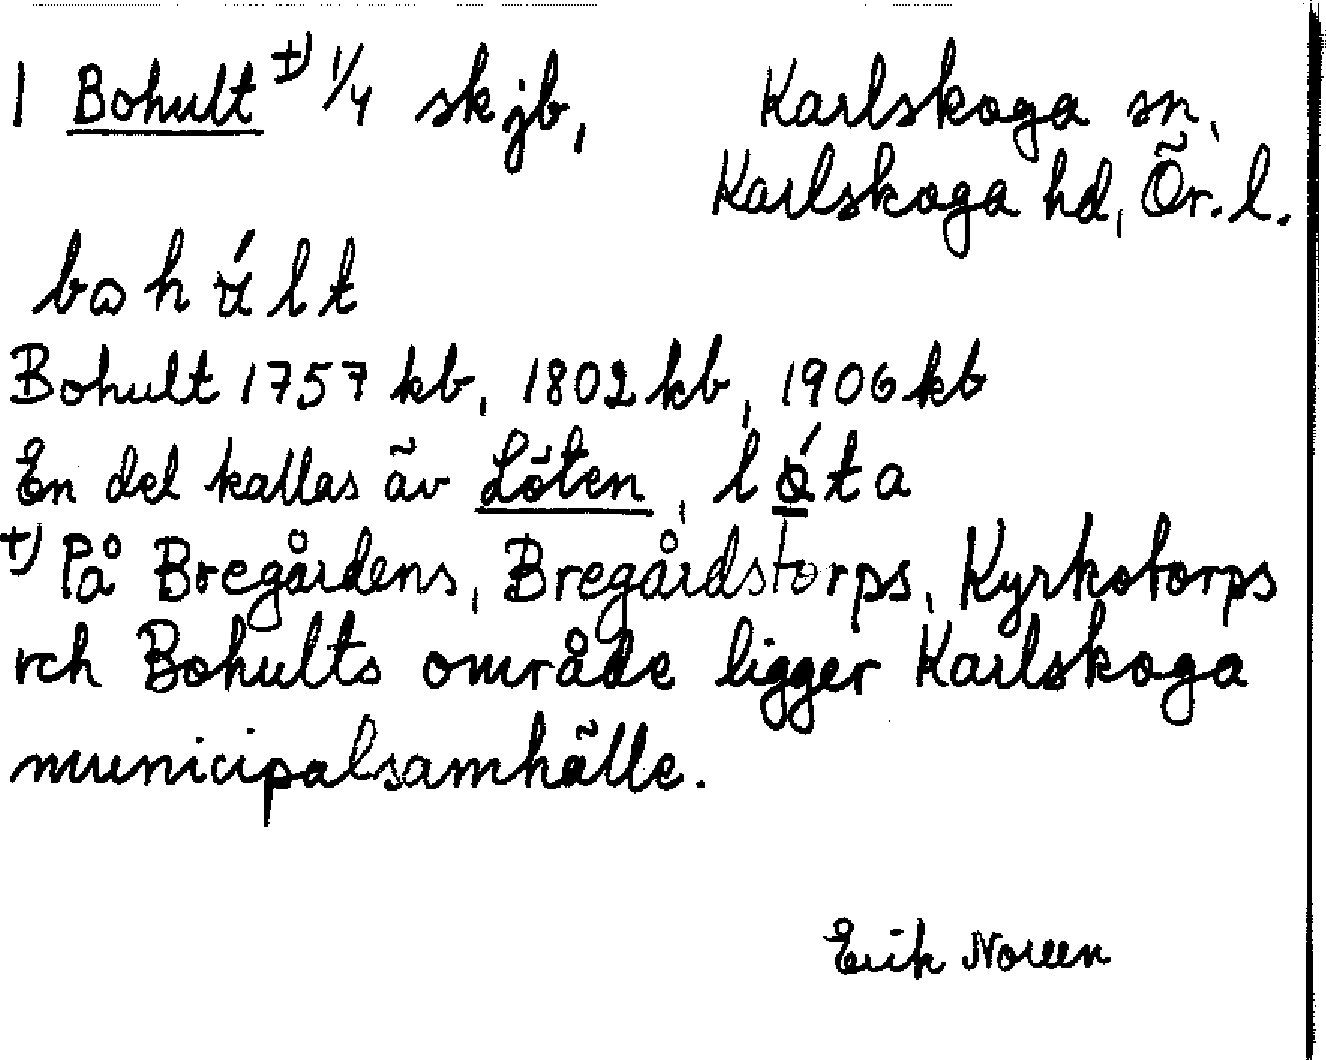 1 Bohult †) 1/4 skjb, Karlskoga sn,
Karlskoga hd, Ör. l.
bohúlt
Bohult 1757 kb, 1802 kb, 1906 kb
En del kallas äv Löten, lǿta
†) På Bregårdens, Bregårdstorps, Kyrkotorps
och Bohults område ligger Karlskoga
municipalsamhälle.
Erik Noreen